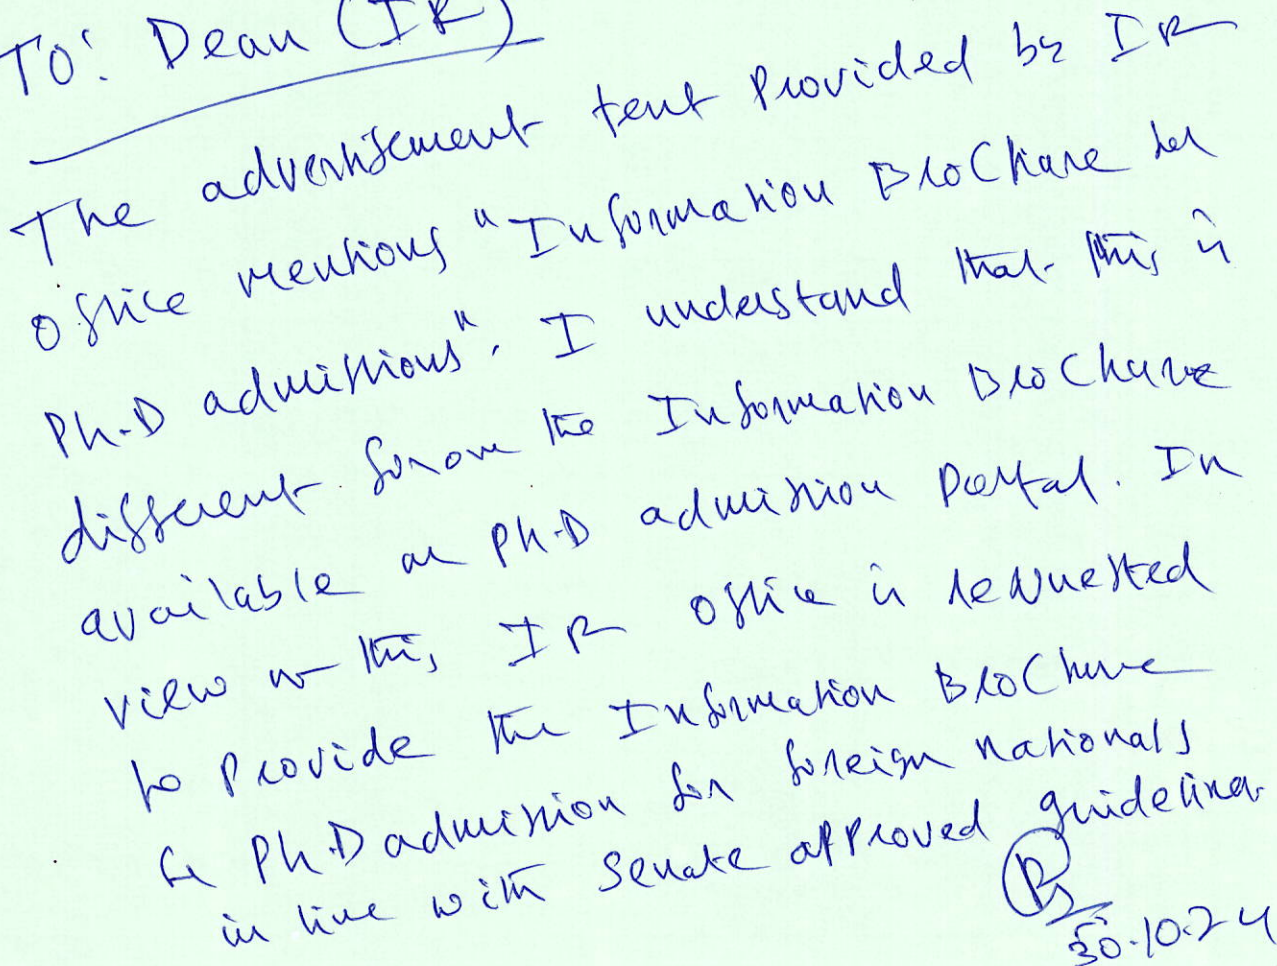 To: Dean (IR)
The advertisement text provided by IR
office mentions "Information Brochure for
Ph.D admissions". I understand that this is
different from the Information Brochure
available on Ph.D admission Portal. In
view of this, IR office is requested
to Provide the Information Brochure
for Ph.D admission for foreign nationals
in line with Senate approved guidelines.
30.10.24